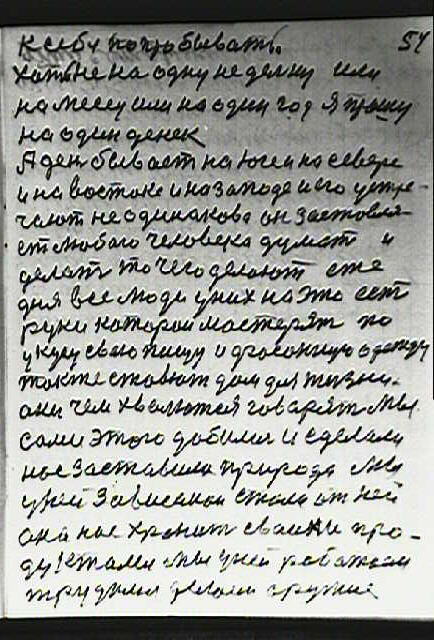 к себу попробывать. 54
хатьне на одну неделку или
на месец или на один год я прошу
на один денек
А ден бывает на юге и на севере
и на востоке и на западе и его устре-
чают не одинакова он заставля-
ет любого человека думат и
делат то чего делают еже
дня все люди у них на это ест
руки которои мастерят по
укусу свою пищу и одежду
также ставют дом для жизни.
они чем хвалются говарят мы
сами этого добилис и сделали
нас заставила природа мы
у ней зависемои стали от ней
она нас хранит сваими про-
дуктами мы у ней работаем
трудимся делаем оружие